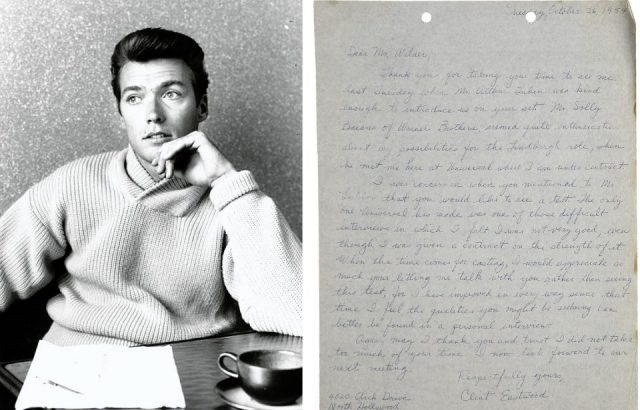 Tuesday, October 26, 1954
Dear Mr. Wilder,
Thank you for taking your time to see me
last Tuesday when Mr. was kind
enough to introduce us on your set. Mr. Solly
of Warner Brothers seemed quite enthusiastic
about my possibilities for the Lindbergh role, when
he met me here at Universal where I am under contract.
I was concerned when you mentioned to Mr.
that you would like to see a test. The only
one Universal has made was one of those difficult
interviews in which I felt I was not very good, even
though I was given a contract on the strength of it.
When the time comes for casting, I would appreciate so
much your letting me talk with you rather than seeing
this test, for I have improved in every way since that
time. I feel the qualities you might be seeking can
better be found in a personal interview.
Again may I thank you and trust I did not take
too much of your time. I now look forward to our
next meeting.
Respectfully yours,
Clint Eastwood
4040 Arch Drive
North Hollywood